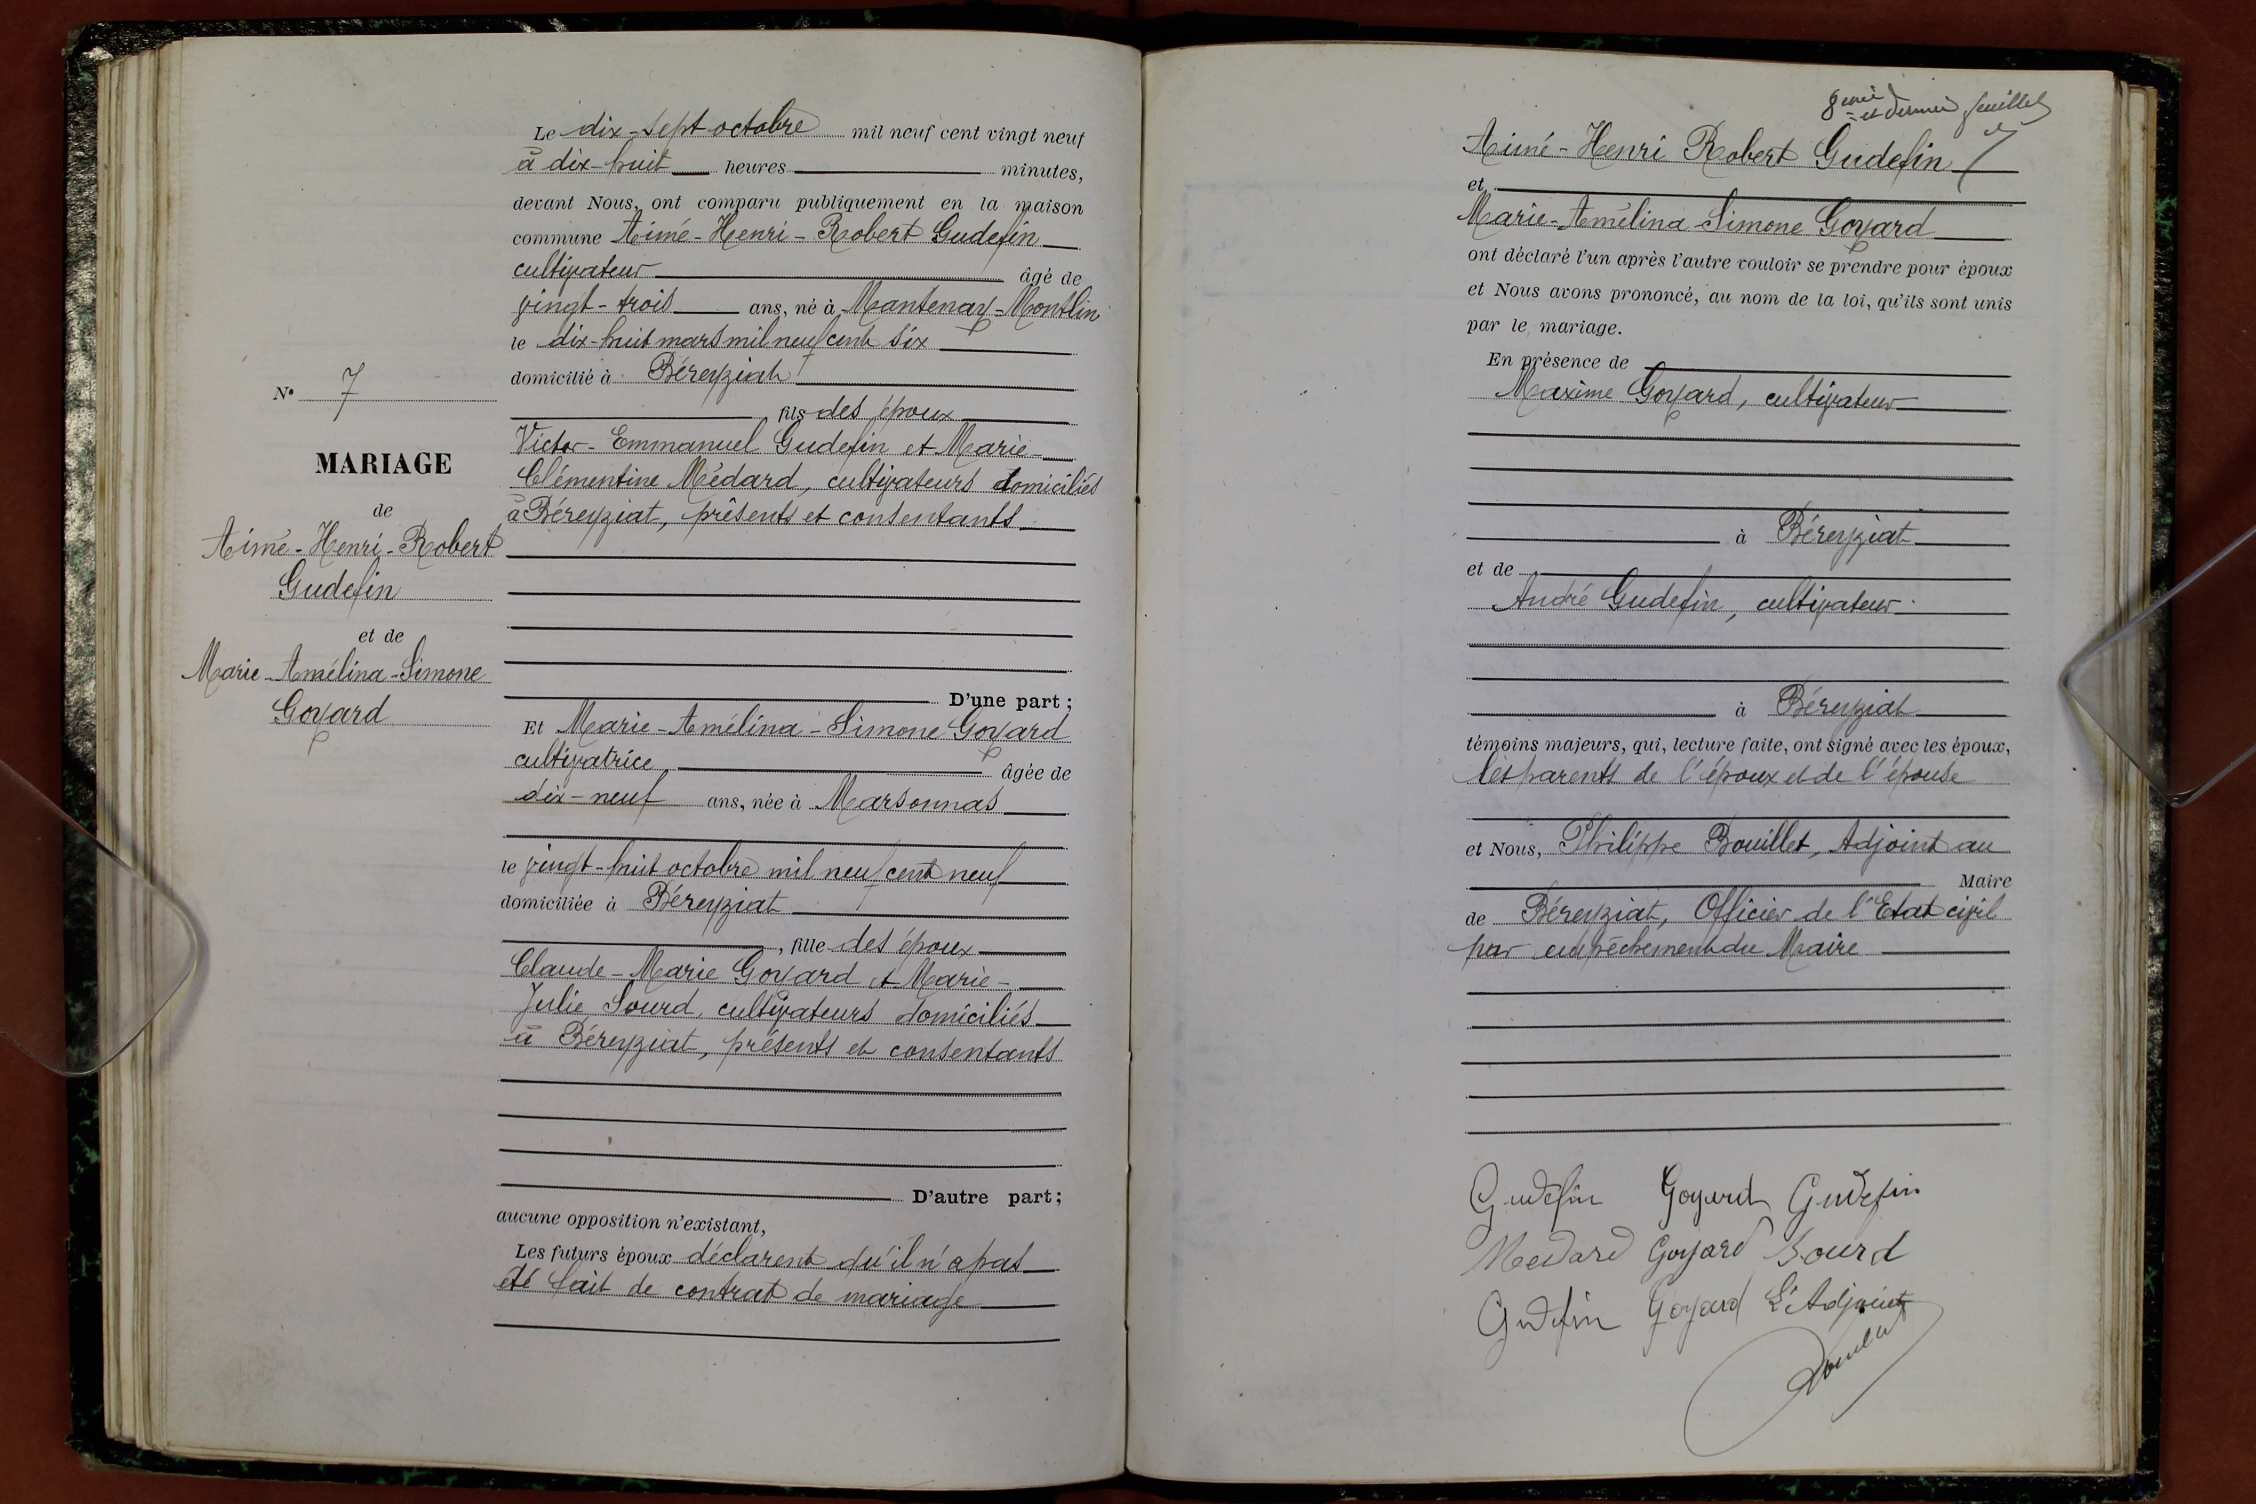 N° 7
MARIAGE
de
Aimé-Henri-Robert
Gudefin
et de
Marie-Amélina-Simone
Goyard
Le dix-sept octobre mil neuf cent vingt neuf
à dix-huit heures minutes,
devant Nous, ont comparu publiquement en la maison
commune Aimé-Henri-Robert Gudefin
cultivateur âgé de
vingt-trois ans, né à Mantenay-Montlin
le dix-huit mars mil neuf cent six
domicilié à Béreyziat
, fils des époux
Victor-Emmanuel Gudefin et Marie-
Clémentine Médard, cultivateurs domiciliés
à Béreyziat, présents et consentants
D'une part ;
Et Marie-Amélina-Simone Goyard
cultivatrice âgée de
dix-neuf ans, née à Marsonnas
le vingt-huit octobre mil neuf cent neuf
domiciliée à Béreyziat
, fille des époux
Claude-Marie Goyard et Marie-
Julie Sourd, cultivateurs domiciliés
à Béreyziat, présents et consentants
D'autre part ;
aucune opposition n'existant,
Les futurs époux déclarent qu'il n'a pas
été fait de contrat de mariage
8eme et dernier feuillet
Aimé-Henri Robert Gudefin
et
Marie-Amélina-Simone Goyard
ont déclaré l'un après l'autre vouloir se prendre pour époux
et Nous avons prononcé, au nom de la loi, qu'ils sont unis
par le mariage.
En présence de
Maxime Goyard, cultivateur
à Béreyziat
et de
André Gudefin, cultivateur
à Béreyziat
témoins majeurs, qui, lecture faite, ont signé avec les époux,
les parents de l'époux et de l'épouse
et Nous, Philippe Bouillet, Adjoint au
Maire
de Béreyziat, Officier de l'Etat civil
par empêchement du Maire
Gudefin Goyard Gudefin
Medard Goyard Sourd
Gudefin Goyard L'Adjoint
Bouillet